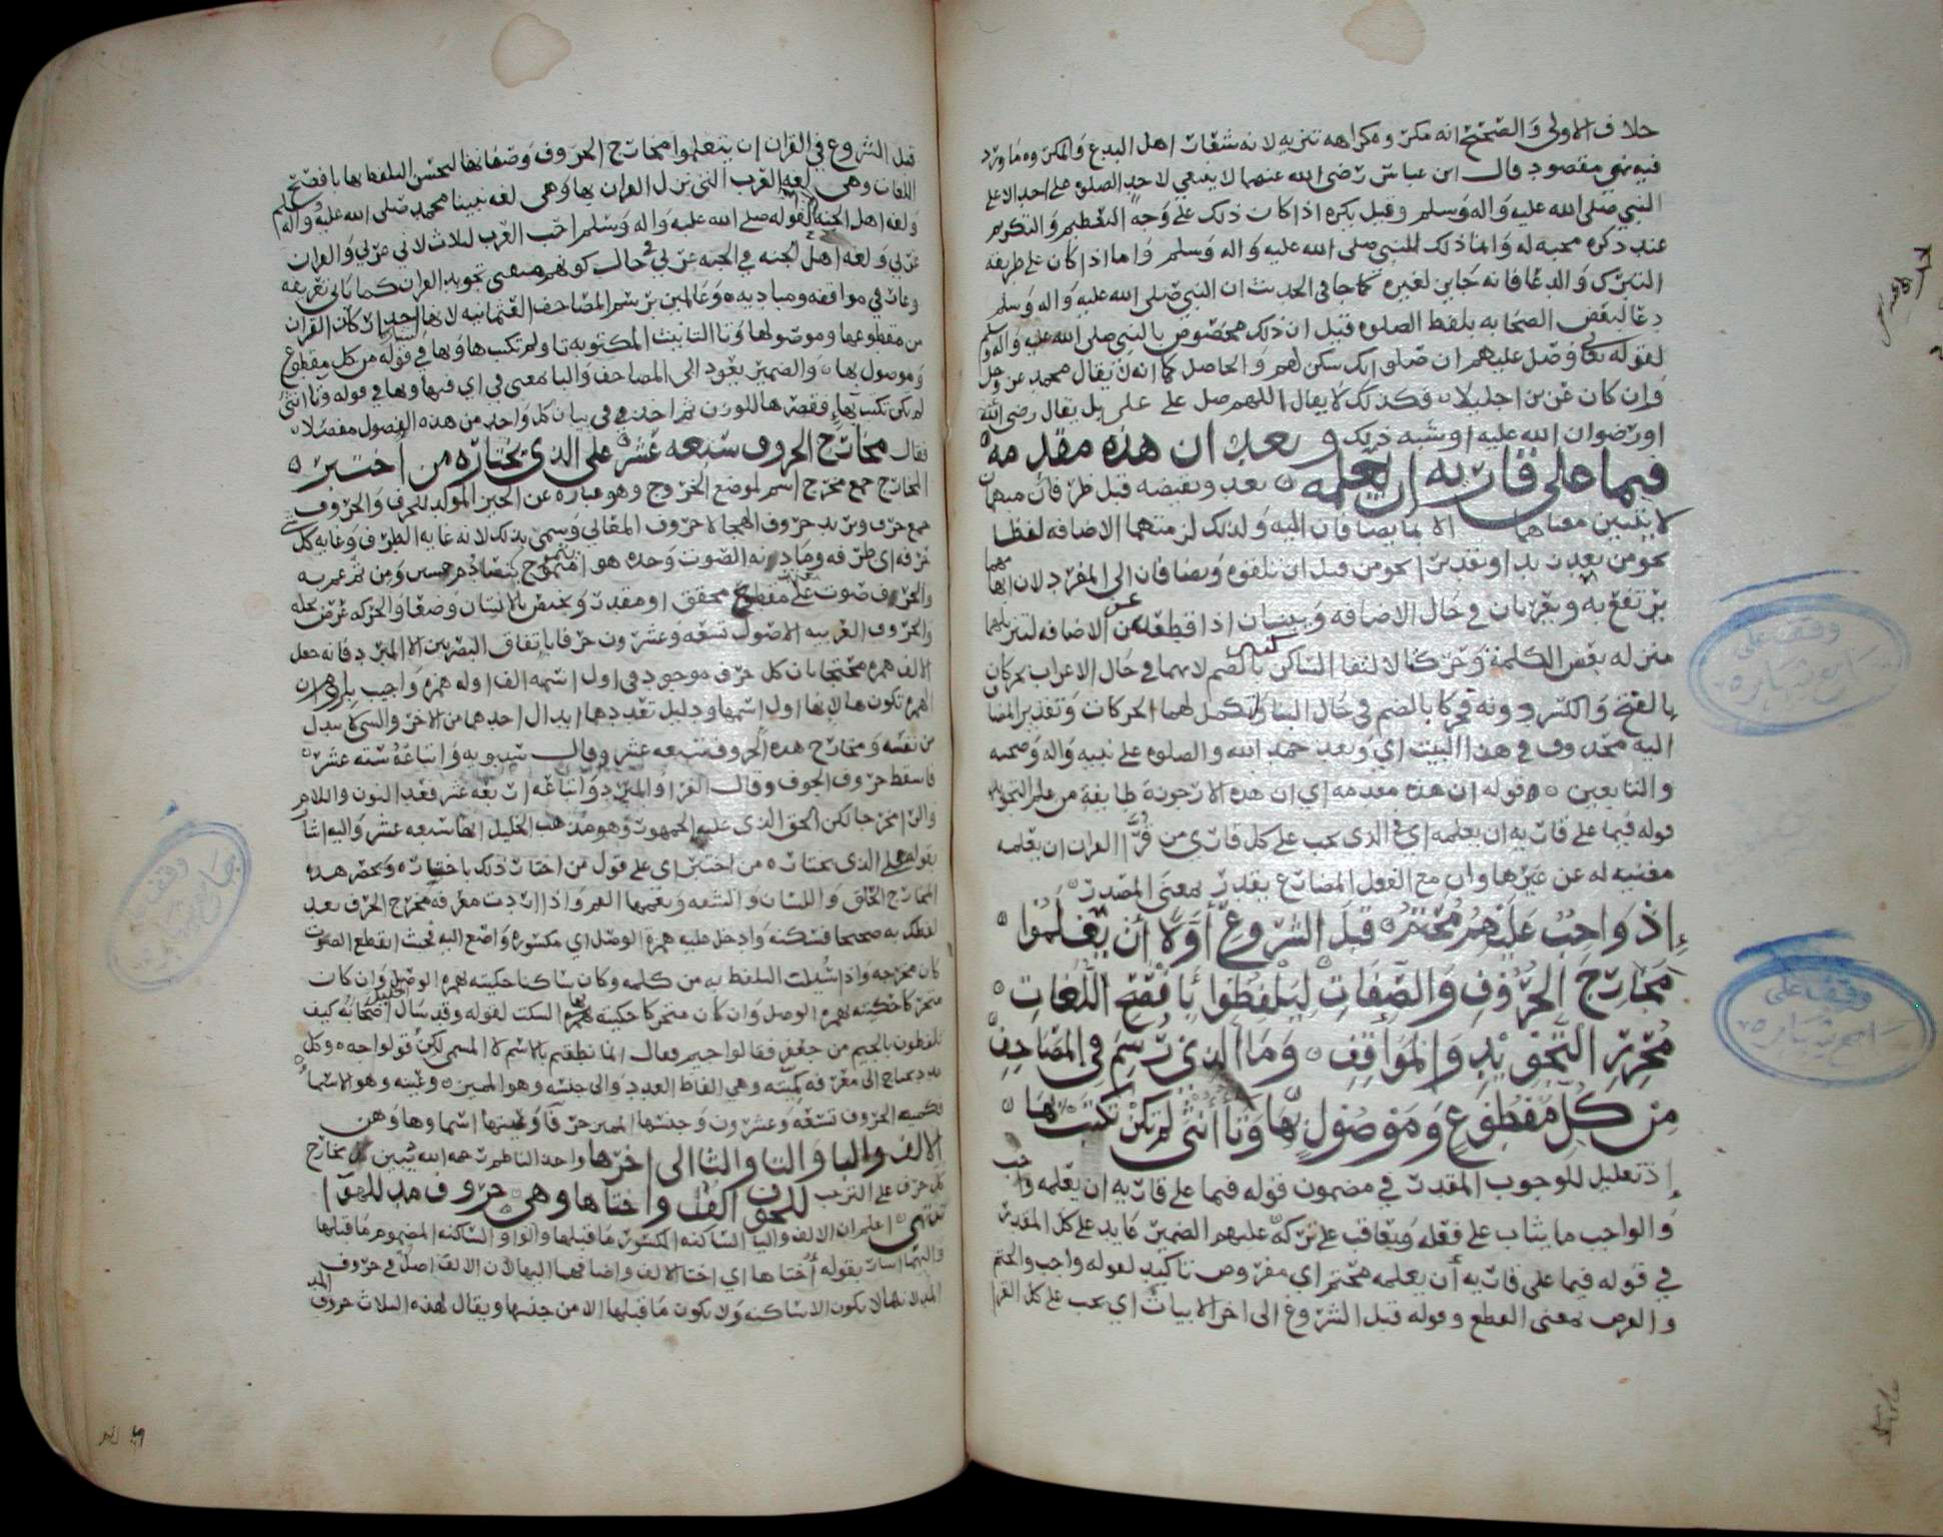 خلاف الاولى والصحيح انه مكروه كراهه تنزيه لانه شعار اهل البدع والمكروه ما ورد
فيه نهي مقصود قال ابن عباس رضى الله عنهما لا ينبغي لاحد الصلوه على احد الا على
النبي صلى الله عليه واله وسلم وقيل يكره اذا كان ذلك على وجه التعظيم والتكريم
عند ذكره محبه له وانما ذلك للنبي صلى الله عليه واله وسلم واما اذا كان على طريقه
التبرك والدعا فانه جايز لغيره كما جا في الحديث ان النبي صلى الله عليه واله وسلم
دعا لبعض الصحابه بلفظ الصلوه فقيل ان ذلك مخصوص بالنبي صلى الله عليه واله وسلم
لقوله تعالى وصل عليهم ان صلوتك سكن لهم والحاصل كما انه لا يقال محمد عز وجل
وان كان عزيزا جليلا فكذلك لا يقال اللهم صل على علي بل يقال رضى الله
او رضوان الله عليه او شبه ذلك وبعد ان هذه مقدمه
فيما على قاريه ان يعلمه بعد ونقيضه قبل ظرفان مبهمان
لا يتبين معناهما الا بما يضافان اليه ولذلك لزمتهما الاضافه لفظا
نحو من بعد زيد او تقديرا نحو من قبل ان تلقوه ويضافان الى المفرد لان ابهامهما
يرتفع به ويعربان في حال الاضافه ويبنيان اذا قطعا عن الاضافه لتنزيلهما
منزله بعض الكلمة وحركتا لالتقا الساكنين بالضم لانهما في حال الاعراب يحركان
بالفتح والكسر دونه فحركا بالضم في حال البنا لتكمل لهما الحركات وتقدير المضا
اليه محذوف في هذا البيت اي وبعد حمد الله والصلوه على نبيه واله وصحبه
والتابعين قوله ان هذه مقدمه اي ان هذه الارجوزة طايفة من علم التجويد
قوله فيما على قاريه ان يعلمه اي في الذى يجب على كل قاري من قرا القران ان يعلمه
مغنيه له عن غيرها وان مع الفعل المضارع يقدر بمعنى المصدر
إذ واجب عليهم محتم قبل الشروع أولا أن يعلموا
مخارج الحروف والصفات ليلفظوا بأفصح اللغات
محرري التجويد والمواقف وما الذي رسم في المصاحف
من كل مقطوع وموصول بها وتا أنثى لم تكن تكتب بها
إذ تعليل للوجوب المقدر في مضمون قوله فيما على قاريه ان يعلمه واجب
والواجب ما يثاب على فعله ويعاقب على تركه عليهم الضمير عايد على كل المقدر
في قوله فيما على قاريه أن يعلمه محتم اي مفروض تاكيد لقوله واجب والحتم
والفرض بمعنى القطع وقوله قبل الشروع الى اخر الابيات اي يجب على كل القرا
وقف على
وقف على
قبل الشروع في القران ان يتعلموا مخارج الحروف وصفاتها ليحسن التلفظ بها بافصح
اللغات وهي لغه العرب التي نزل القران بها وهى لغه نبينا محمد صلى الله عليه واله وسلم
ولغه اهل الجنه لقوله صلى الله عليه واله وسلم احب العرب لثلاث لاني عربي والقران
عربي ولغه اهل الجنه في الجنه عربي في حال كونهم متقني تجويد القران كما ياتي تعريفه
وعارفي مواقفه ومباديه وعالمين برسم المصاحف العثمانيه لانها احد اركان القران
من مقطوعها وموصولها وتا التانيث المكتوبه تا ولم تكتب ها وبها في قوله من كل مقطوع
وموصول بها والضمير يعود الى المصاحف والبا بمعنى في اي فيها وبها في قوله وتا انثى
لم تكن تكتب بها فقصرها للوزن ثم اخذ في بيان كل واحد من هذه الفصول مفصلا
فقال مخارج الحروف سبعه عشر على الذي يختاره من اختبر
المخارج جمع مخرج اسم لموضع الخروج وهو عباره عن الحيز المولد للحرف والحروف
جمع حرف ويريد حروف الهجا لا حروف المعاني وسمي بذلك لانه غايه الطرف وغايه كل شي
حرفه اي طرفه ومادته الصوت وحده هو
والحرف صوت على مقطع محقق او مقدر ويختص بالانسان وضعا والحركه عرض تحله
والحروف العربيه الاصول تسعه وعشرون حرفا باتفاق البصريين الا المبرد فانه جعل
الالف همزه محتجا بان كل حرف موجود في اول اسمه الف اوله همزه واجيب
الهمزه تكون ها لانها اول اسمها ودليل تعددهما ابدال احدهما من الاخر والشي لا يبدل
من نفسه ومخارج هذه الحروف سبعه عشر وقال سيبويه واتباعه سته عشر
فاسقط حروف الجوف وقال الفرا والمبرد واتباعه اربعه عشر فعد النون واللام
والرا مخرجا لكن الحق الذى عليه الجمهور وهو مذهب الخليل انها سبعه عشر واليه اشار
بقوله على الذى يختاره من اختبر اي على قول من اختار ذلك باختياره ويحصر هذه
المخارج الحلق واللسان والشفه ويعمها الفم واذا اردت معرفه مخرج الحرف بعد
لفظك به صحيحا فسكنه وادخل عليه همزه الوصل اي مكسوره واصغ اليه فحيث انقطع الصوت
كان مخرجه واذا سئلت التلفظ به من كلمه وكان ساكنا حكيته بهمزه الوصل وان كان
متحركا حكيته بها السكت لقوله وقد سال الخليل اصحابه كيف
تلفظون بالجيم من جعفر فقالوا جيم فقال انما نطقتم بالاسم لا المسمى لكن قولوا جه وكل
عدد يحتاج الى معرفه كميته وهي الفاظ العدد والى جنسه وهو المميز وعينه وهو الاسما
فكميه الحروف تسعه وعشرون وجنسها المميز حرفا وعينها اسماوها وهن
الالف والبا والتا والثا الى اخرها واخذ الناظم رحمه الله يبين مخارج
كل حرف على الترتيب للجوف الف واختاها وهي حروف مد للهوا
تنتهي اعلم ان الالف واليا الساكنه المكسور ما قبلها والواو الساكنه المضموم ما قبلها
واليهما اشار بقوله أختاها اي اختا الالف واضافهما اليها لأن الالف اصل في حروف المد
لانها لا تكون الا ساكنه ولا يكون ما قبلها الا من جنسها ويقال لهذه الثلاث حروف